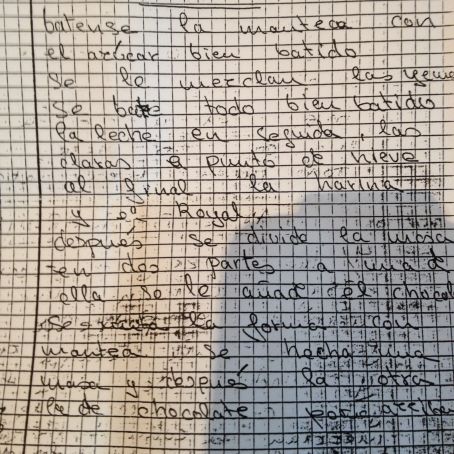 batense la manteca con
el azúcar bien batido
se le mezclan las yema
se bate todo bien batido
la leche en seguida, las
claras a punto de nieve
al final la harina
y el Royal,
después se divide la masa
en dos partes a una de
ella se le añade el chocol
se la forma con
manteca se hecha una
masa y después la otra
la de chocolate por arriba